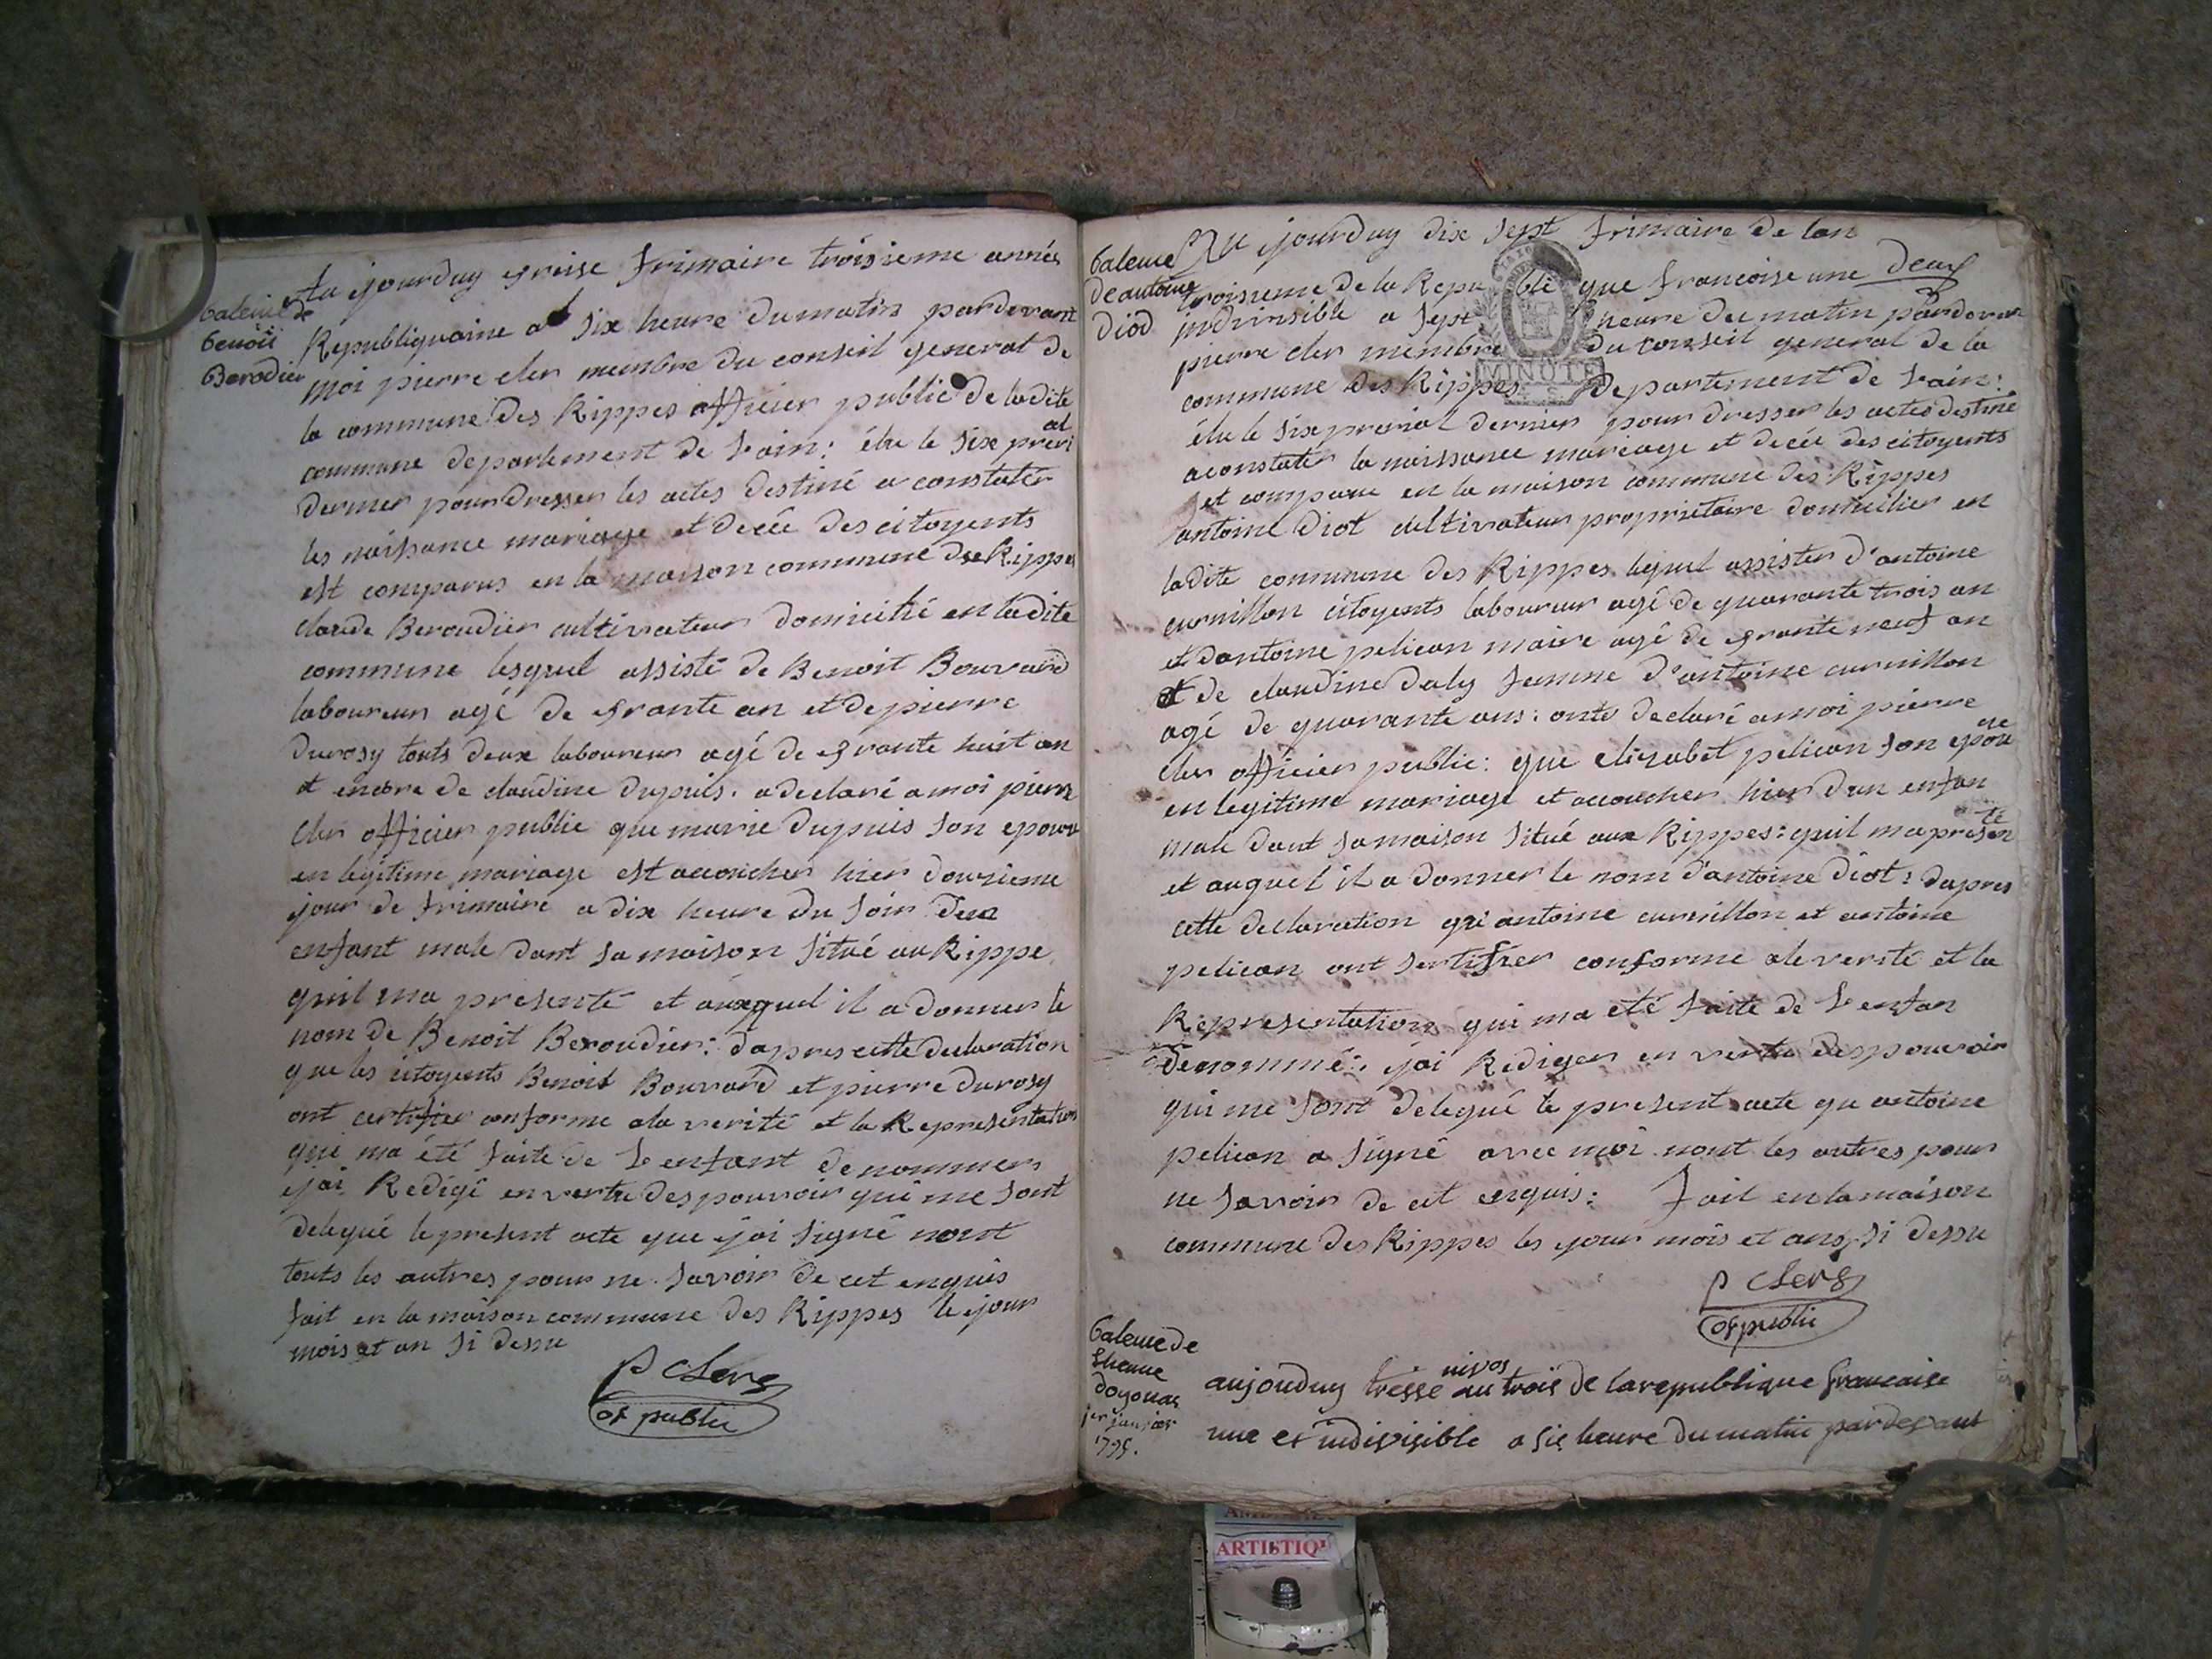 Batenie de
Benoit
Berodier
Au jourduy traise frimaire troisieme année
Republiquaine a six heure du matin pardevant
moi pierre cler membre du conseil general de
la commune des Rippes officier public de ladite
commune departement de l'ain: élu le six preri al
dernier pour dresser les actes destiné a constatér
les naissance mariage et decée des citoyents
est comparus en la maison commune des Rippes
claude Beroudier cultivateur domicilié en ladite
commune lesquel assisté de Benoit Bouvard
laboureur agé de trante an et de pierre
durosy touts deux laboureur agé de trante huit an
et encore de claudine dupuis. a declaré a moi pierre
Cler officier public que marie dupuis son epouse
en legitime mariage est accoucher hier douzieme
jour de frimaire a dix heure du soir dun
enfant male dant sa maison situé au Rippe
quil ma presenté et auxquel il a donner le
nom de Benoit Beroudier: dapres cette declaration
que les citoyents Benoit Bouvard et pierre durosy
ont certifier conforme ala verité et la Representation
qui ma été faite de l'enfant denommer
jai Redigé en vertu des pouvoir qui me sont
delegué le present acte que jai signé nont
touts les autres pour ne savoir de cet enquis
fait en la maison commune des Rippes le jour
mois et an si dessu
P Clerg
of public
deantoine
Diod
Au jourduy dix sept frimaire de lan
troisieme de la Republi que francoise une deux
indivinsible a sept heure du matin pardevan
pierre cler membre du conseil general de la
MINUTE
commune des Rippes departement de l'ain:
élu le six prerial dernier pour dresser les actes destiné
aconstater la naissance mariage et decée des citoyents
et comparu en la maison commune des Rippes
antoine diot cultivateur proprietaire domicilier en
ladite commune des Rippes lequel assister d'antoine
curnillon citoyents laboureur agé de quarante trois an
et dantoine pelican maire agé de trante neuf an
et de claudine daly femme d'antoine curnillon
agé de quarante ans: onts declaré a moi pierre
cler officier public: que elizabet pelican son epou se
en legitime mariage et accoucher hier dun enfan
male dant sa maison situé aux Rippes: quil ma presen té
et auquel il a donner le nom d'antoine diot: dapres
cette declaration qui antoine curnillon et antoine
pelican ont sertifier conforme ale verité et la
Representation qui ma eté faite de l'enfan
denommé: jai Rediger en vertu des pouvoir
qui me sont delegué le present acte qu antoine
pelican a signé avec moi nont les autres pour
ne savoir de cet enquis: fait en la maison
commune des Rippes les jour mois et ans si dessu
P Clerg
of public
de
doyonax
1er janvier
1795.
aujouduy tresse nivos an trois de la republique francaise
une et indivisible a sis heure du matin pardevant
ARTISTIQ